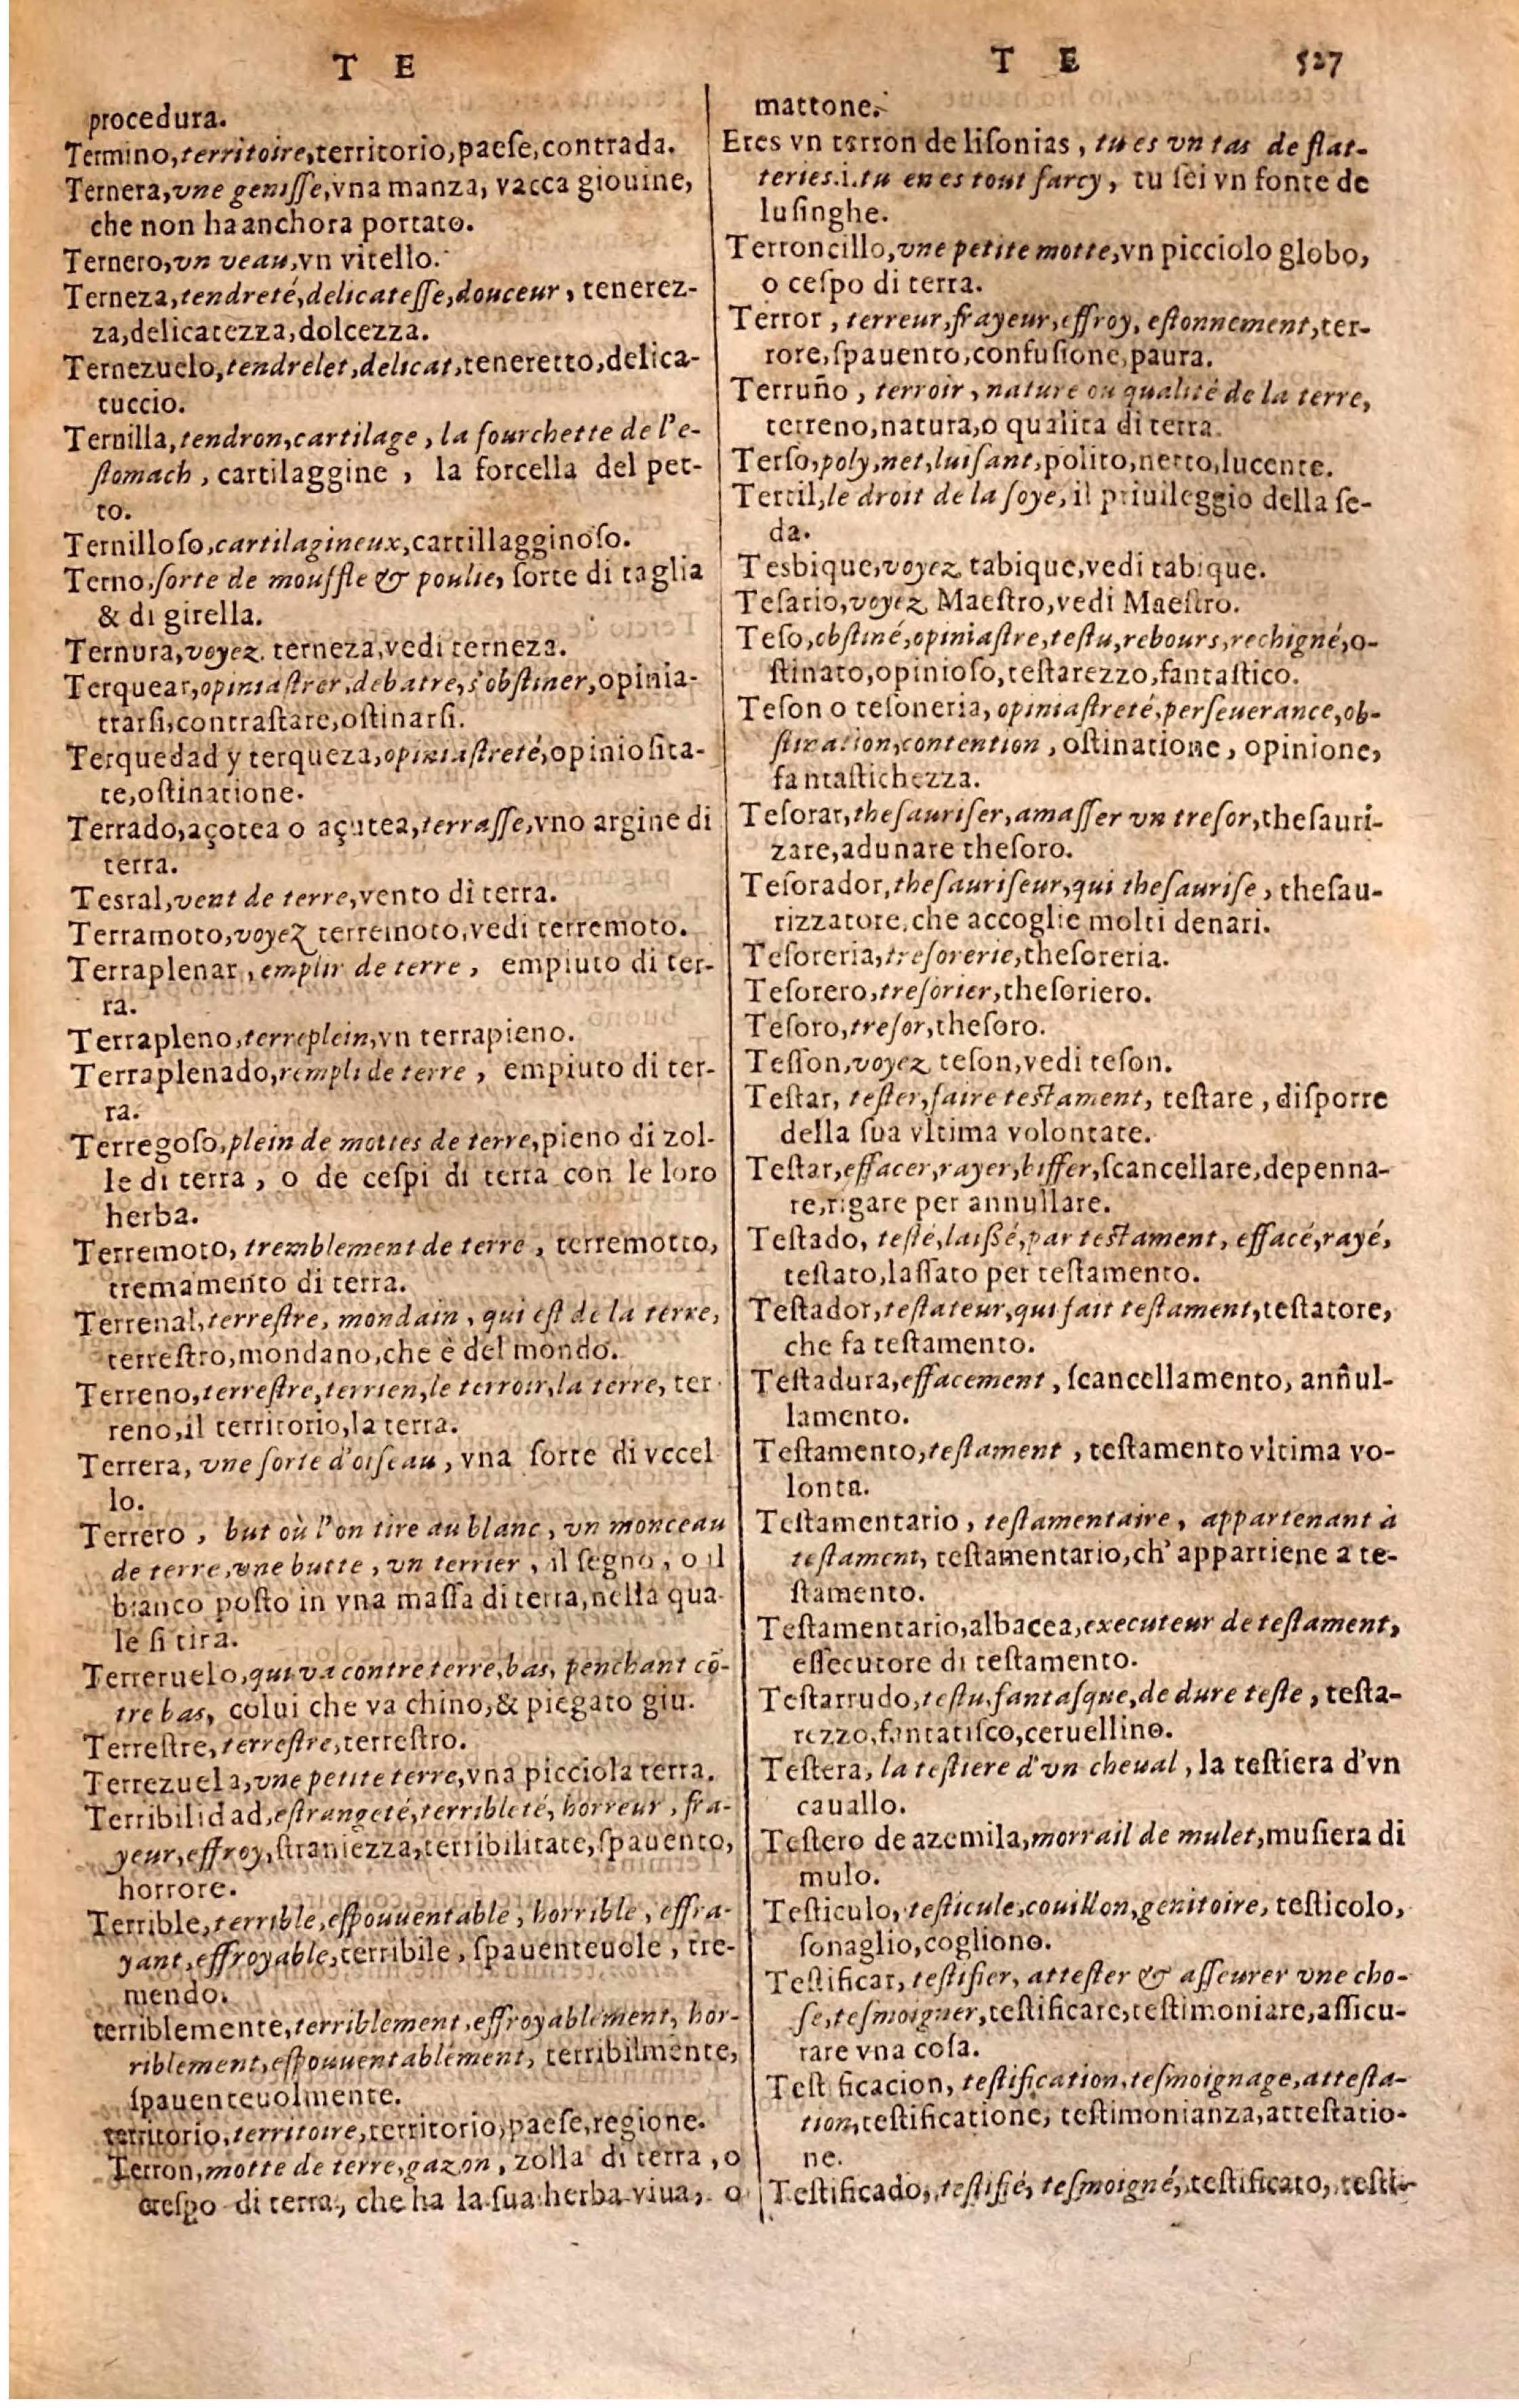 T E
procedura.
Termino, territoire, territorio, paeſe, contrada.
Ternera, vne geniſſe, vna manza, vacca giouine,
che non ha anchora portato.
Ternero, vn veau, vn vitello.
Terneza, tendreté, delicateſſe, douceur, tenerez-
za, delicatezza, dolcezza.
Ternezuelo, tendrelet, delicat, teneretto, delica-
tuccio.
Ternilla, tendron, cartilage, la fourchette de l'e-
ſtomach, cartilaggine, la forcella del pet-
to.
Ternilloſo, cartilagineux, cartillagginoſo.
Terno, ſorte de mouffle & poulie, ſorte di taglia
& di girella.
Ternura, voyez terneza, vedi terneza.
Terquear, opiniaſtrer, debatre, s'obſtiner, opinia-
trarſi, contraſtare, oſtinarſi.
Terquedad y terqueza, opiniaſtreté, opinioſita-
te, oſtinatione.
Terrado, açotea o açutea, terraſſe, vno argine di
terra.
Tesral, vent de terre, vento di terra.
Terramoto, voyez terremoto, vedi terremoto.
Terraplenar, emplir de terre, empiuto di ter-
ra.
Terrapleno, terreplein, vn terrapieno.
Terraplenado, rempli de terre, empiuto di ter-
ra.
Terregoſo, plein de mottes de terre, pieno di zol-
le di terra, o de ceſpi di terra con le loro
herba.
Terremoto, tremblement de terre, terremotto,
tremamento di terra.
Terrenal, terreſtre, mondain, qui eſt de la terre,
terreſtro, mondano, che è del mondo.
Terreno, terreſtre, terrien, le terroir, la terre, ter
reno, il territorio, la terra.
Terrera, vne ſorte d'oiſeau, vna ſorte di vccel
lo.
Terrero, but où l'on tire au blanc, vn monceau
de terre, vne butte, vn terrier, il ſegno, o il
bianco poſto in vna maſſa di terra, nella qua
le ſi tira.
Terreruelo, qui va contre terre, bas, penchant cõ-
tre bas, colui che va chino, & piegato giu.
Terreſtre, terreſtre, terreſtro.
Terrezuela, vne petite terre, vna picciola terra.
Terribilidad, eſtrangeté, terribleté, horreur, fra-
yeur, effroy, ſtraniezza, terribilitate, ſpauento,
horrore.
Terrible, terrible, eſpouuentable, horrible, effra-
yant, effroyable, terribile, ſpauenteuole, tre-
mendo.
terriblemente, terriblement, effroyablement, hor-
riblement, eſpouuentablement, terribilmente,
ſpauenteuolmente.
territorio, territoire, territorio, paeſe, regione.
Terron, motte de terre, gazon, zolla di terra, o
ceſpo di terra, che ha la ſua herba viua, o
T E 527
mattone.
Eres vn terron de liſonias, tu es vn tas de flat-
teries.i.tu en es tout farcy, tu ſei vn fonte de
luſinghe.
Terroncillo, vne petite motte, vn picciolo globo,
o ceſpo di terra.
Terror, terreur, frayeur, effroy, eſtonnement, ter-
rore, ſpauento, confuſione, paura.
Terruño, terroir, nature ou qualité de la terre,
terreno, natura, o qualita di terra.
Terſo, poly, net, luiſant, polito, netto, lucente.
Tertil, le droit de la ſoye, il priuileggio della ſe-
da.
Tesbique, voyez tabique, vedi tabique.
Teſario, voyez Maeſtro, vedi Maeſtro.
Teſo, obſtiné, opiniaſtre, teſtu, rebours, rechigné, o-
ſtinato, opinioſo, teſtarezzo, fantaſtico.
Teſon o teſoneria, opiniaſtreté, perſeuerance, ob-
ſtination, contention, oſtinatione, opinione,
fantaſtichezza.
Teſorar, theſauriſer, amaſſer vn treſor, theſauri-
zare, adunare theſoro.
Teſorador, theſauriſeur, qui theſauriſe, theſau-
rizzatore, che accoglie molti denari.
Teſoreria, treſorerie, theſoreria.
Teſorero, treſorier, theſoriero.
Teſoro, treſor, theſoro.
Teſſon, voyez teſon, vedi teſon.
Teſtar, teſter, faire teſtament, teſtare, diſporre
della ſua vltima volontate.
Teſtar, effacer, rayer, biffer, ſcancellare, depenna-
re, rigare per annullare.
Teſtado, teſté, laiſſé, par teſtament, effacé, rayé,
teſtato, laſſato per teſtamento.
Teſtador, teſtateur, qui fait teſtament, teſtatore,
che fa teſtamento.
Teſtadura, effacement, ſcancellamento, anñul-
lamento.
Teſtamento, teſtament, teſtamento vltima vo-
lonta.
Teſtamentario, teſtamentaire, appartenant à
teſtament, teſtamentario, ch' appartiene a te-
ſtamento.
Teſtamentario, albacea, executeur de teſtament,
eſſecutore di teſtamento.
Teſtarrudo, teſtu, fantaſque, de dure teſte, teſta-
rezzo, fantatiſco, ceruellino.
Teſtera, la teſtiere d'vn cheual, la teſtiera d'vn
cauallo.
Teſtero de azemila, morrail de mulet, muſiera di
mulo.
Teſticulo, teſticule, couillon, genitoire, teſticolo,
ſonaglio, coglione.
Teſtificar, teſtifier, atteſter & aſſeurer vne cho-
ſe, teſmoigner, teſtificare, teſtimoniare, aſſicu-
rare vna coſa.
Teſt ficacion, teſtification, teſmoignage, atteſta-
tion, teſtificatione, teſtimonianza, atteſtatio-
ne.
Teſtificado, teſtifié, teſmoigné, teſtificato, teſti-